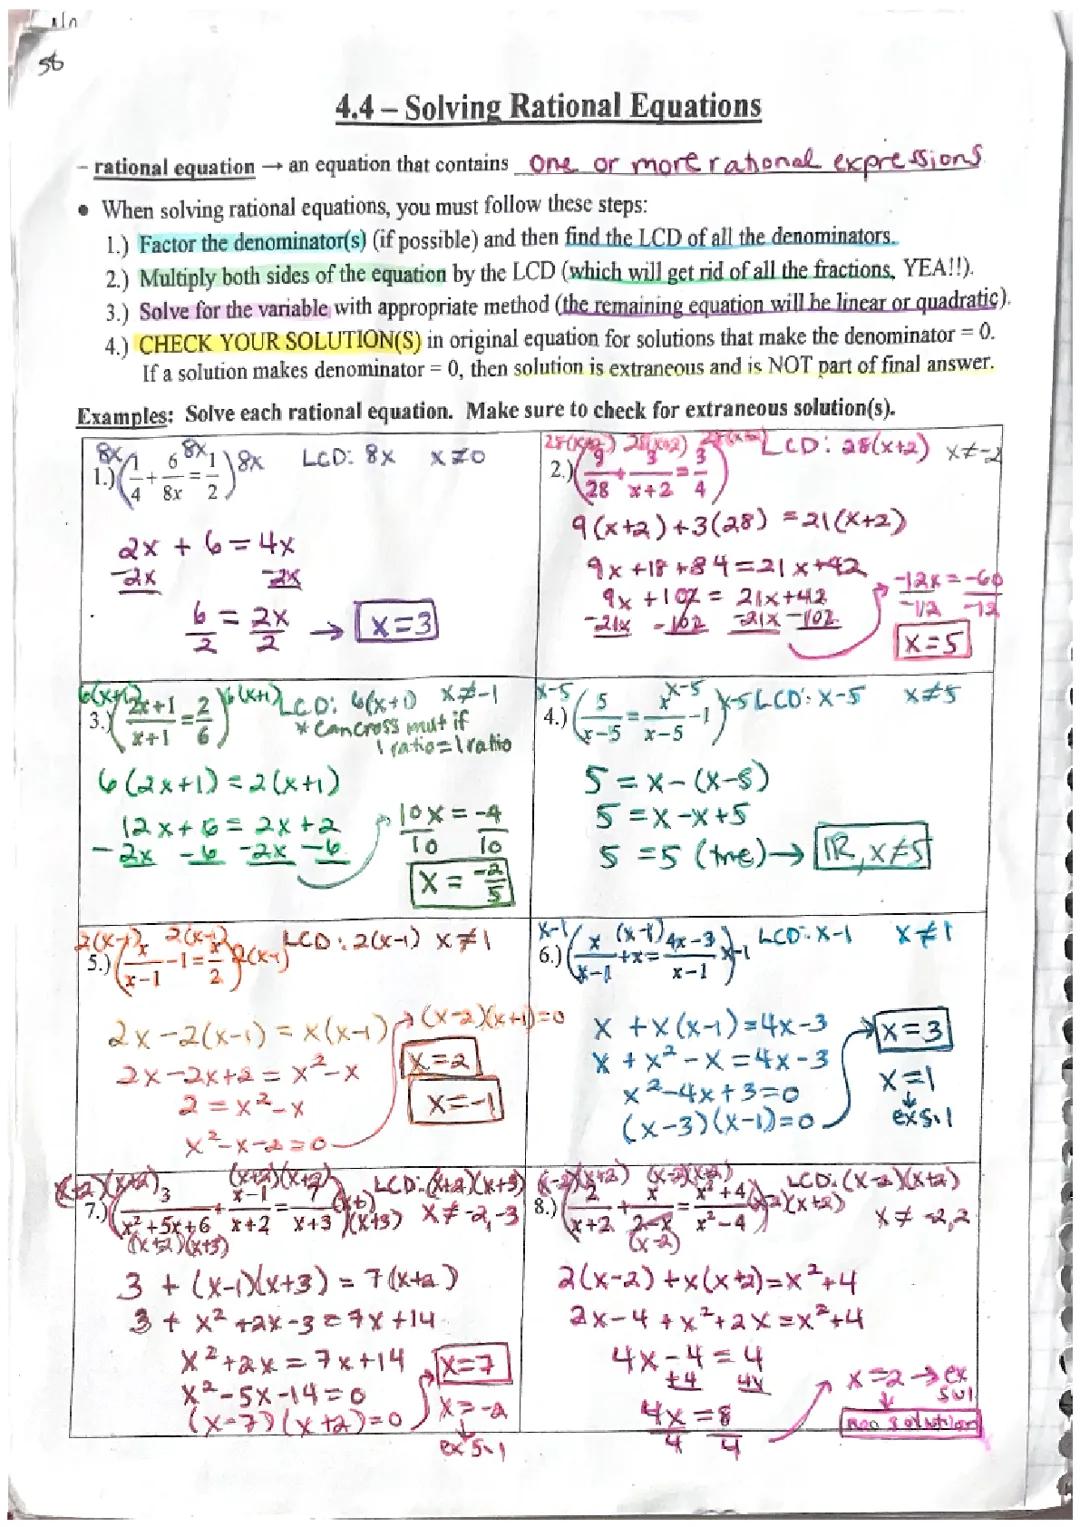 58
4.4 – Solving Rational Equations
– rational equation → an equation that contains one or more rational expressions
• When solving rational equations, you must follow these steps:
1.) Factor the denominator(s) (if possible) and then find the LCD of all the denominators.
2.) Multiply both sides of the equation by the LCD (which will get rid of all the fractions, YEA!!).
3.) Solve for the variable with appropriate method (the remaining equation will be linear or quadratic).
4.) CHECK YOUR SOLUTION(S) in original equation for solutions that make the denominator = 0.
If a solution makes denominator = 0, then solution is extraneous and is NOT part of final answer.
Examples: Solve each rational equation. Make sure to check for extraneous solution(s).
1.) 8x(1/4 + 6/8x = 1/2)8x 8x LCD: 8x x≠0
2x + 6 = 4x
-2x -2x
6/2 = 2x/2 → x=3
2.) 28(x+2) 28(x+2) 28(x+2) (9/28 + 3/x+2 = 3/4) LCD: 28(x+2) x≠-2
9(x+2)+3(28) = 21(x+2)
9x+18+84=21x+42
9x+102 = 21x+42
-21x -102 -21x -102
-12x = -60
-12 -12
x=5
3.) 6(x+1)(2x+1/x+1 = 2/6)6(x+1) LCD: 6(x+1) x≠-1
* can cross mult if
1 ratio = 1 ratio
6(2x+1) = 2(x+1)
12x+6 = 2x+2
-2x -6 -2x -6
10x = -4
10 10
x = -2/5
4.) x-5(5/x-5 = x/x-5 - 1)x-5 x-5 LCD: x-5 x≠5
5 = x-(x-5)
5 = x-x+5
5 = 5 (true) → ℝ, x≠5
5.) 2(x-1)(x/x-1 - 1 = x/2)2(x-1) 2(x-1) LCD: 2(x-1) x≠1
2x-2(x-1) = x(x-1)
2x-2x+2 = x²-x
2 = x²-x
x²-x-2=0
(x-2)(x+1)=0
x=2
x=-1
6.) x-1(x/x-1 + x = 4x-3/x-1)x-1 (x-1) LCD: x-1 x≠1
x + x(x-1) = 4x-3
x + x² - x = 4x-3
x²-4x+3=0
(x-3)(x-1)=0
x=3
x=1
↓
ex sol
7.) (x+2)(x+3) (x+2)(x+3) (3/x²+5x+6 + x-1/x+2 = 7/x+3)(x+3) LCD: (x+2)(x+3) x≠-2,-3
(x+2)(x+3)
3 + (x-1)(x+3) = 7(x+2)
3 + x² +2x-3 = 7x+14
x²+2x = 7x+14
x²-5x-14=0
(x-7)(x+2)=0
x=7
x=-2
↓
ex sol
8.) (x-2)(x+2) (x-2)(x+2) (2/x+2 + x/2-x = x²+4/x²-4)(x-2)(x+2) LCD: (x-2)(x+2) x≠-2,2
(x-2)
2(x-2)+x(x+2)=x²+4
2x-4+x²+2x=x²+4
4x-4=4
+4
4x = 8
4 4
x=2 → ex sol
↓
no solution